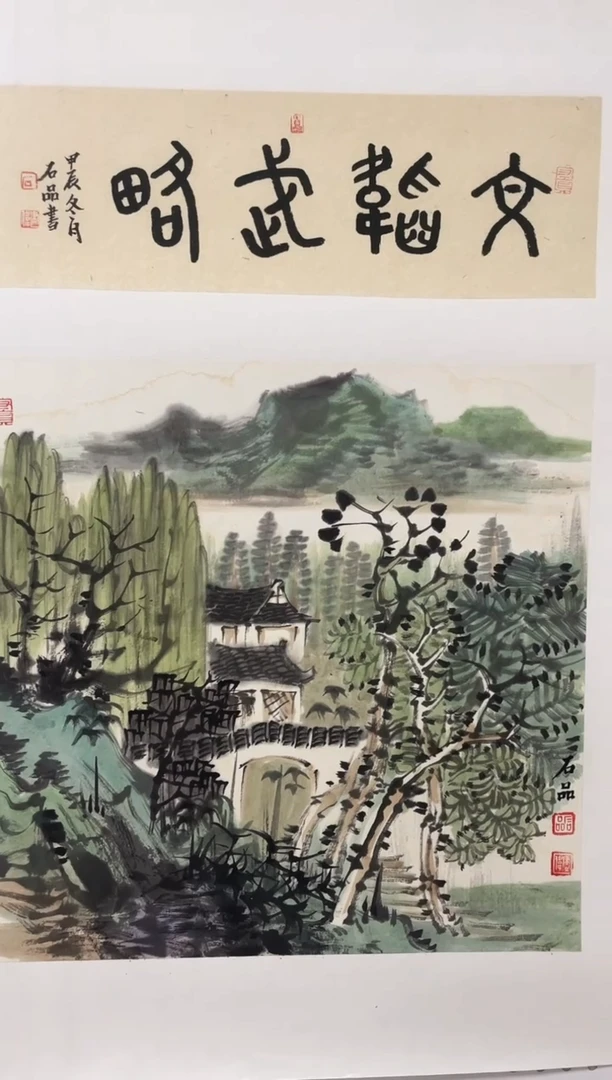 文韜武略
甲辰冬月
石品書
石品